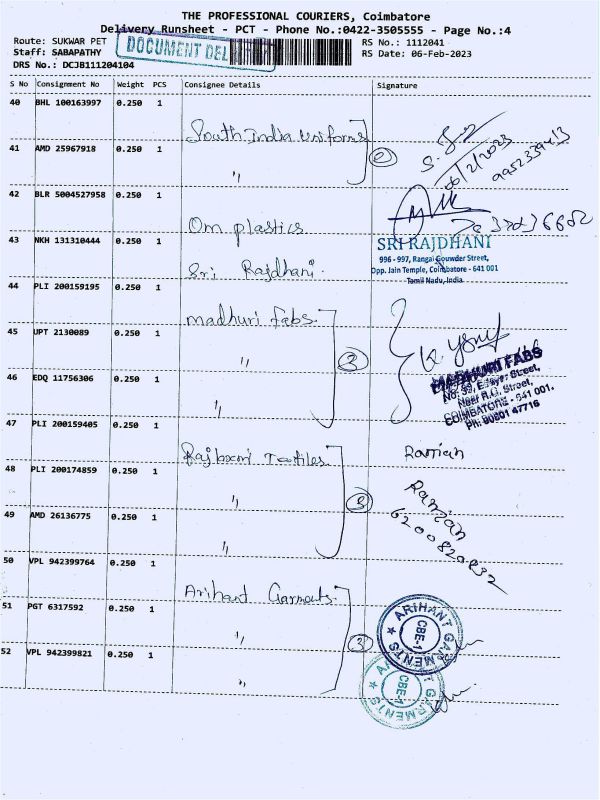 THE PROFESSIONAL COURIERS, Coimbatore
Delivery Runsheet - PCT - Phone No.:0422-3505555 - Page No.:4
Route: SUKWAR PET
RS No.: 1112041
Staff: SABAPATHY
DOCUMENT DEL
RS Date: 06-Feb-2023
DRS No.: DCJB111204104
S No Consignment No Weight PCS Consignee Details Signature
40 BHL 100163997 0.250 1
South India Uniforms
41 AMD 25967918 0.250 1
"
2
06/2/2023
42 BLR 5004527958 0.250 1
Om plastics
43 NKH 131310444 0.250 1
Sri Rajdhani
SRI RAJDHANI
996 - 997, Rangai Gouwder Street,
Opp. Jain Temple, Coimbatore - 641 001
Tamil Nadu, India
44 PLI 200159195 0.250 1
madhuri fabs
45 UPT 2130089 0.250 1
"
3
46 EDQ 11756306 0.250 1
"
MADHURI FABS
Street,
Near R.G. Street,
COIMBATORE - 641 001.
Ph: 90801 47716
47 PLI 200159405 0.250 1
Rajlaxmi Textiles
Ranjan
48 PLI 200174859 0.250 1
"
3
Ranjan
6200820832
49 AMD 26136775 0.250 1
"
50 VPL 942399764 0.250 1
Arihant Garments
51 PGT 6317592 0.250 1
"
3
ARIHANT GARMENTS
CBE-1
52 VPL 942399821 0.250 1
"
ARIHANT GARMENTS
CBE-1